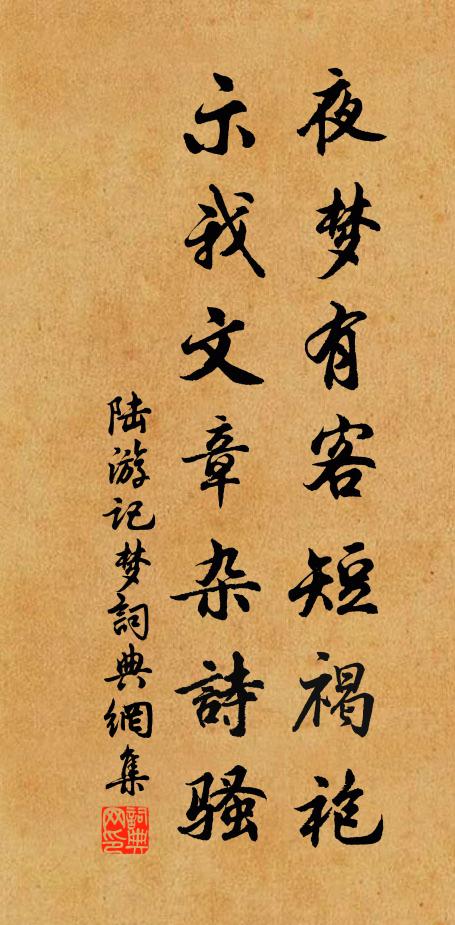 夜梦有客短褐袍
示我文章杂詩骚
陆游记梦詞典網集
詞典
网印